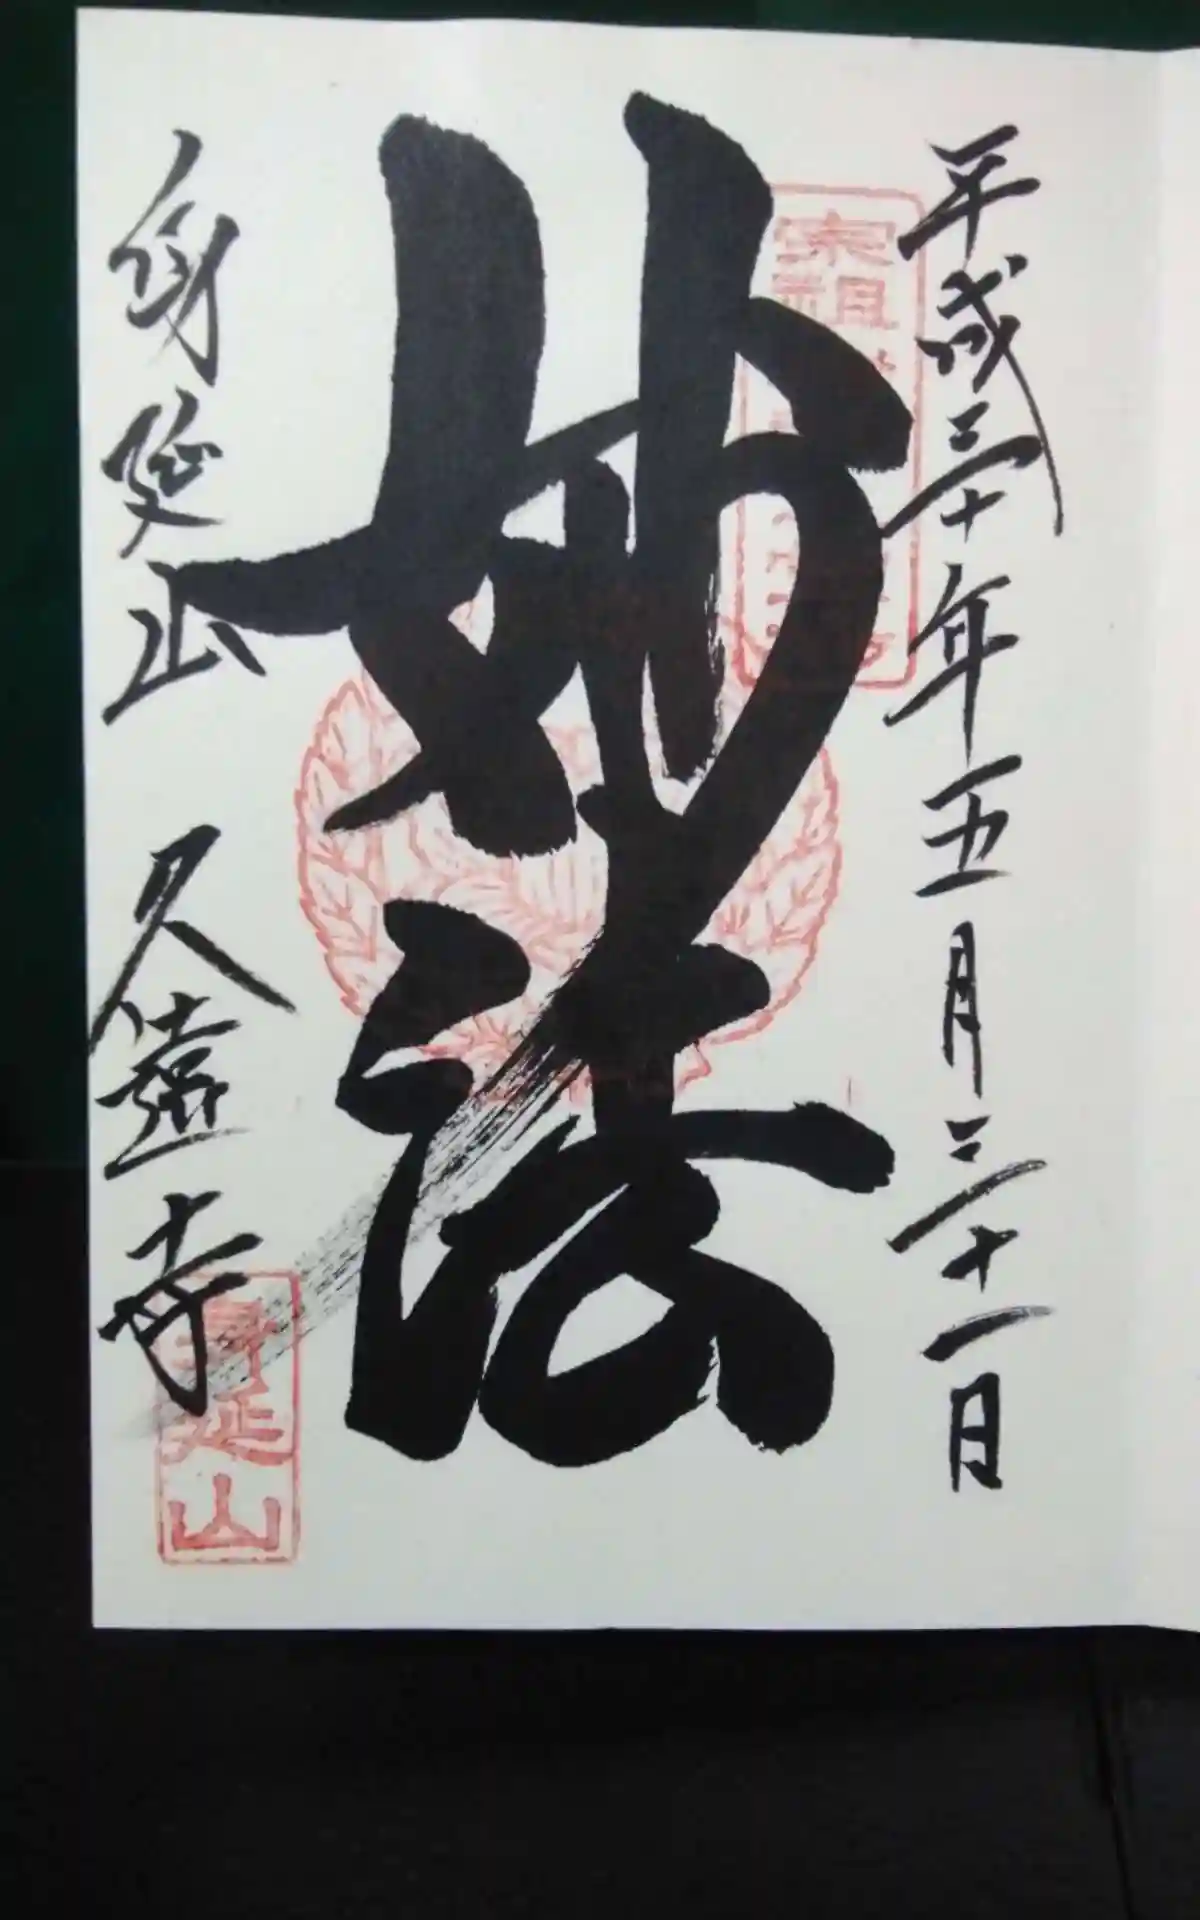 平成三十年五月三十一日
宗祖
妙法
身延山 久遠寺
身延山